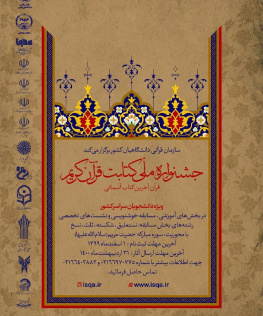 سازمان قرآنی دانشگاهیان کشور برگزار می‌کند
جشنواره ملی کتابت قرآن کریم
قرآن آخرین کتاب آسمانی
ویژه دانشجویان سراسر کشور
در بخش‌های آموزشی، مسابقه خوشنویسی و نشست‌های تخصصی
رشته‌های بخش مسابقه: نستعلیق، شکسته، ثلث، نسخ
با محوریت: سوره مبارکه حضرت مریم (سلام‌الله‌علیها)
آخرین مهلت ثبت نام: ۱۰ اسفندماه ۱۳۹۹
آخرین مهلت ارسال آثار: ۳۱ اردیبهشت ماه ۱۴۰۰
جهت اطلاعات بیشتر با شماره ۰۲۱۶۶۹۷۰۷۷۵ و ۰۲۱۶۶۴۰۲۸۸۲
تماس حاصل فرمائید.
isqa.ir www.isqa.ir